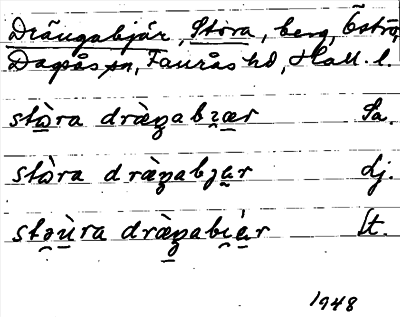 Drängabjär, Stora, berg, Östra
Dagsås sn, Faurås hd, Hall. l.
stò̱ra dràŋabɀær Sa.
stòra dràŋabɀa̱r Lj.
stəù̱ra dràŋabi̯èa̱r St.
1948